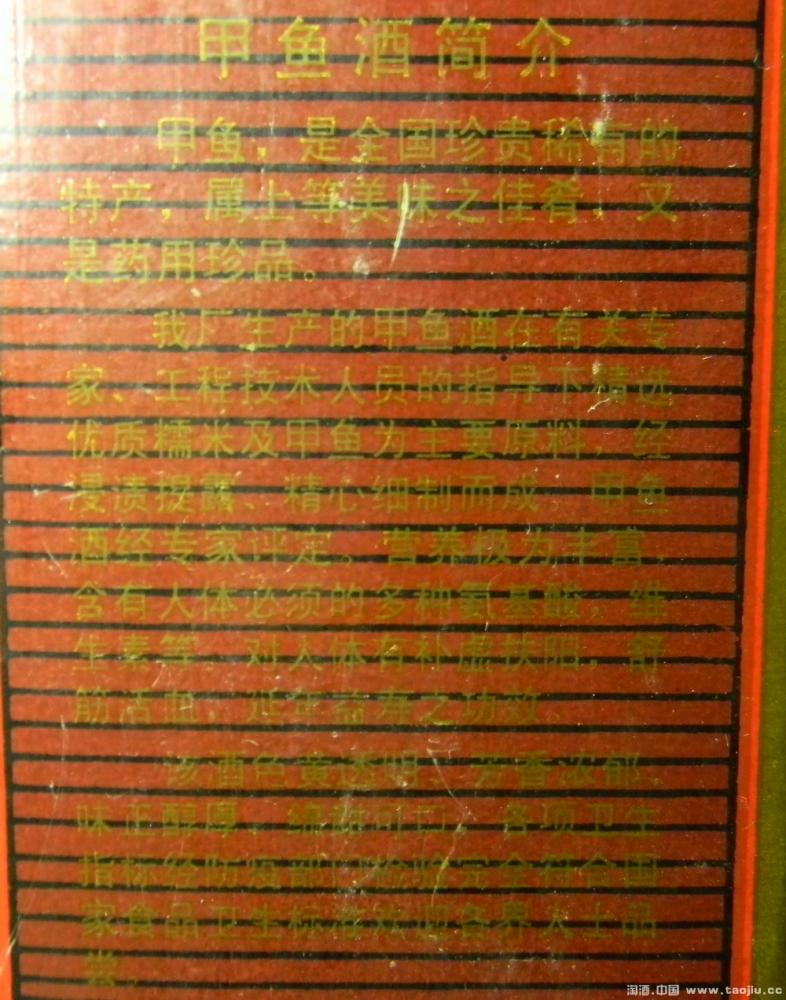 甲鱼酒简介
甲鱼，是全国珍贵稀有的
特产，属上等美味之佳肴，又
是药用珍品。
我厂生产的甲鱼酒在有关专
家、工程技术人员的指导下精选
优质糯米及甲鱼为主要原料，经
浸渍提露、精心细制而成。甲鱼
酒经专家评定。营养极为丰富，
含有人体必须的多种氨基酸，维
生素等，对人体有补虚扶阳，舒
筋活血，延年益寿之功效。
该酒色黄透明、芳香浓郁，
味正醇厚，绵甜可口，各项卫生
指标经防疫部门检验完全符合国
家食品卫生标准欢迎各界人士品
尝。
淘酒.中国 www.taojiu.cc